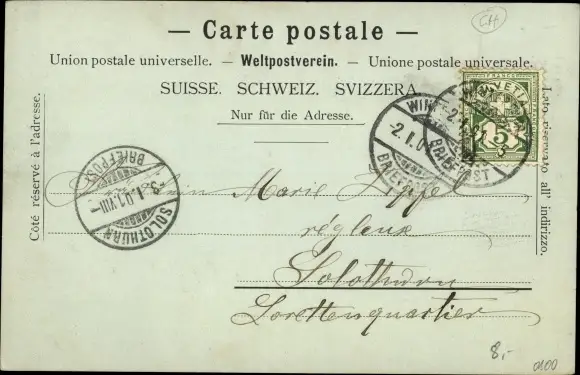 CH
— Carte postale —
Union postale universelle. — Weltpostverein. — Unione postale universale.
SUISSE. SCHWEIZ. SVIZZERA
Nur für die Adresse.
Côté réservé à l'adresse.
Lato riservato all' indirizzo.
FRANCO
5
WIN
-2.I.0
BRIEFPOST
SOLOTHURN
-3.I.01.VIII-
BRIEFPOST
Marie
régleuse
Solothurn
Lorettenquartier
8.-
0100